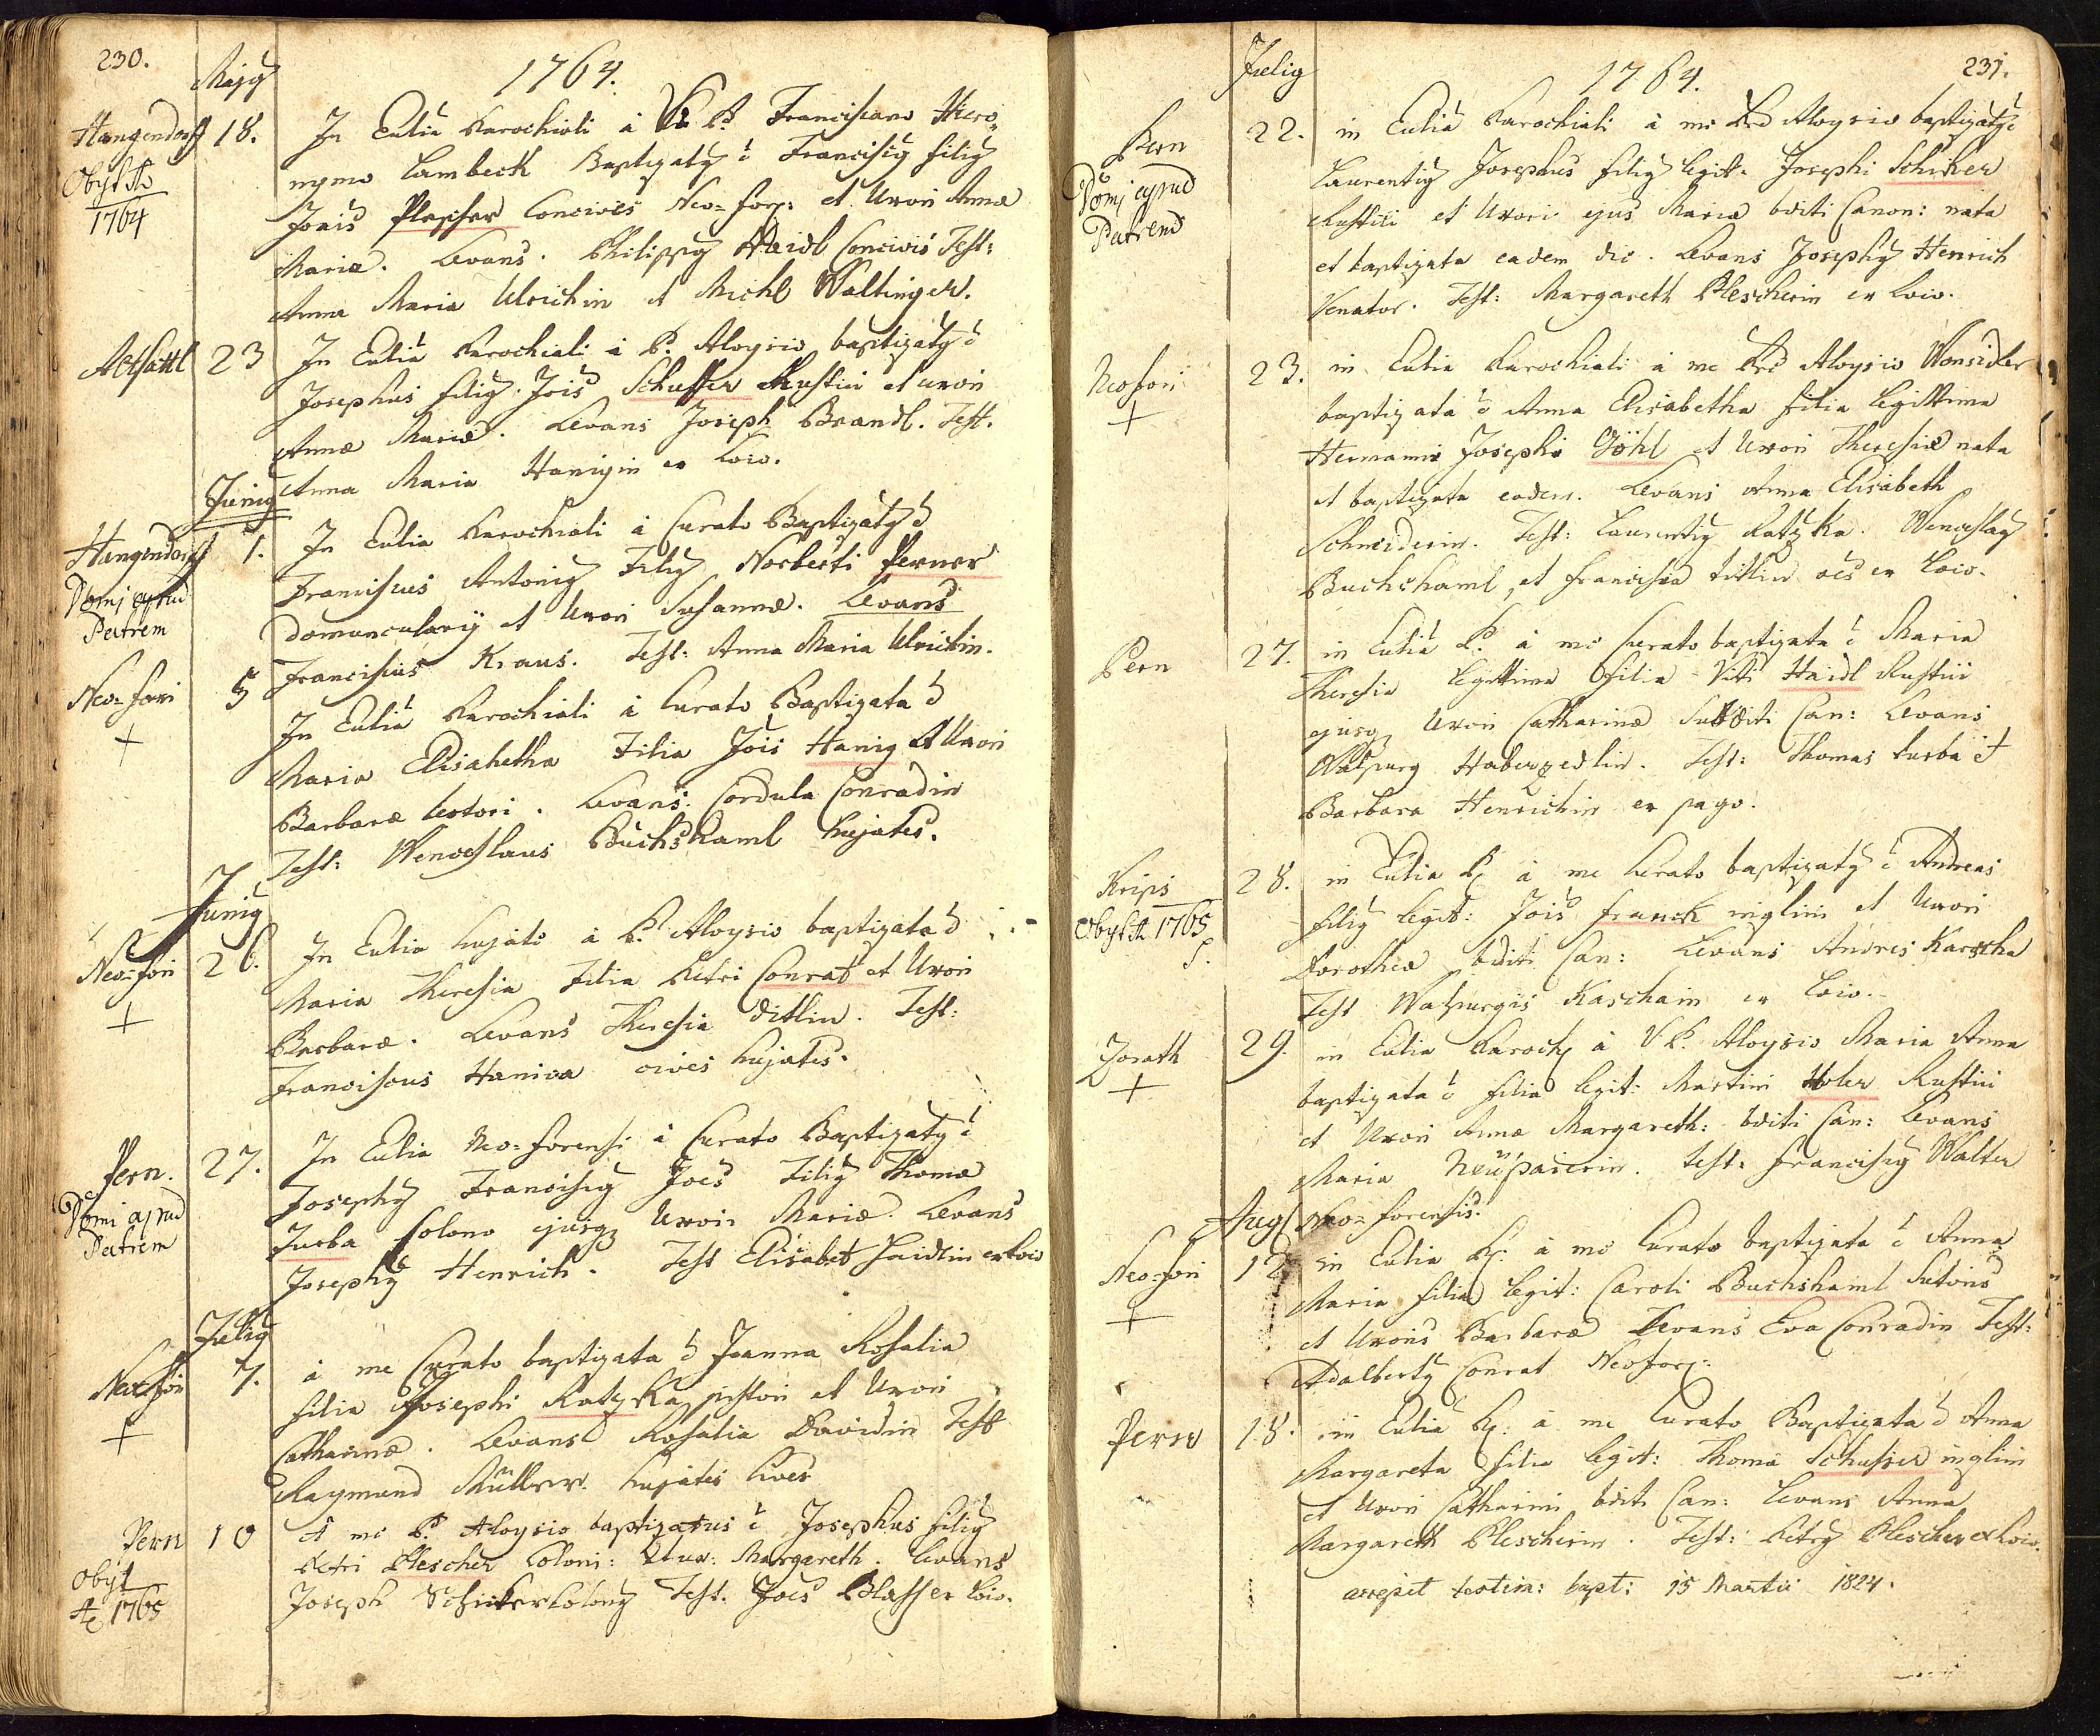 230.
Majy
1764.
Hangendorff 18. In Eccliâ Parochiali à V. P. Franciscano Hiero,
Obyt Ao nymo Lambeck Baptizaty ē Franciscy filiy
1764 Joais Plescher Concives Neo-for: et Uxori Annæ
Mariæ. Levans. Philippy Haidl Concivis Test:
Anna Maria Ulrichin et Michl Waltinger.
Abtsattl 23 In Eccliâ Parochiali à P. Aloysio baptizaty ē
Josephus filiy Jois Schusser Rustici et uxori
Annæ Mariæ. Levans Joseph Brandl. Test.
Anna Maria Hanigin ex Loco.
Juniy
Hangendorff 1. In Ecclia Parochiali à Curato Baptizaty ē
Domj apud Franciscus Antoniy Filiy Norberti Perner
Patrem domuncularij et Uxori Susannæ. Levans
Franciscus Kraus. Test: Anna Maria Ulrichin.
Neo-fori 5 In Eccliâ Parochiali à Curato Baptizata ē
+ Maria Elisabetha Filia Jois Hanig et Uxori
Barbaræ . Levans: Cordula Conradin
Test: Wenceslaus Buchshaml hujates.
Juniy
Neo-fori 26. In Ecclia hujate à P. Aloysio baptizata ē
+ Maria Theresia Filia Petri Conrat et Uxori
Barbaræ. Levans Theresia ditlin. Test:
Franciscus Haniga cives hujates.
Pern. 27. In Ecclia Neo-forensi à Curato Baptizaty ē
Domi apud Josephy Franciscy Joes Filiy Thomæ
Patrem Turba Colono ejusq Uxori Mariæ. Levans
Josephy Henrich. Test Elisabet Haidlin ex loco
Juliy
Neo-fori 7. à me Curato baptizata ē Joanna Rosalia
+ filia Josephi Ratzka pistori et Uxori
Catharinæ. Levans Rosalia Davidin Test
Raymund Müllner. hujates Cives
Pern 10 A me P. Aloysio baptizatus ē Josephus filiy
obyt Petri Plescher Coloni: et ux: Margareth. Levans
Ao 1765 Joseph Schicker Colony Test: Joes Blasser Loco.
Juliy
1764.
231.
Pern 22. in Eccliâ Parochiali à me Aloysio baptizaty ē
Domj apud Laurentiy Josephus filiy legit: Josephi Schiker
Patrem Rustici et Uxori ejus Mariæ bditi Canon: nata
et baptizata eadem die. Levans Josephy Henrich
Venator. Test: Margareth Plescherin ex Loco.
Neofori 23. in Ecclia Parochiali à me Aloysio Wonsidler
+ baptizata ē Anna Elisabetha filia legittima
Hermanni Josephi Göhl et Uxori Theresiæ nata
et baptizata eadem. Levans Anna Elisabeth
Schneiderin. Test: Laurentiy Ratzka. Wenceslay
Buchshaml, et Francisca titlin ex Loco.
Pern 27. in Eccliâ P. à me Curato baptizata ē Maria
Theresia legittima filia Viti Haidl Rustici
ejusq Uxori Catharinæ Subditi Can: Levans
Walpurg Haberzedlin. Test: Thomas turba et
Barbara Henrichin ex pago.
Krips 28. in Ecclia P: à me Curato baptizaty ē Andreas
Obyt Ao 1765 filiy legit: Jois Franck inqlini et Uxori
S. Dorotheæ bditi Can: Levans Andres Karscha
Test Walpurgis Kaschain ex Loco.
Zorath 29. in Ecclia Paroch à V. P. Aloysio Maria Anna
+ baptizata ē filia legit: Martini Holer Rustici
et Uxori Annæ Margareth: bditi Can: Levans
Maria Neüpaierin. test: Franciscy Walter
Neo-forensis.
Aug
Neo-fori 12 in Ecclia P: à me Curato baptizata ē Anna
+ Maria filia legit: Caroli Buchshaml Sutoris
et Uxoris Barbaræ Levans Eva Conradin Test:
Adalberty Conrat Neofor:
Pern 18. in Eccliâ P: à me Curato Baptizata ē Anna
Margareta filia legit: Thomæ Schusser inqlini
et Uxori Catharini bditi Can: Levans Anna
Margareth Plescherin. Test: Petry Plescher ex loco.
accepit testim: bapt: 15 Martii 1824.